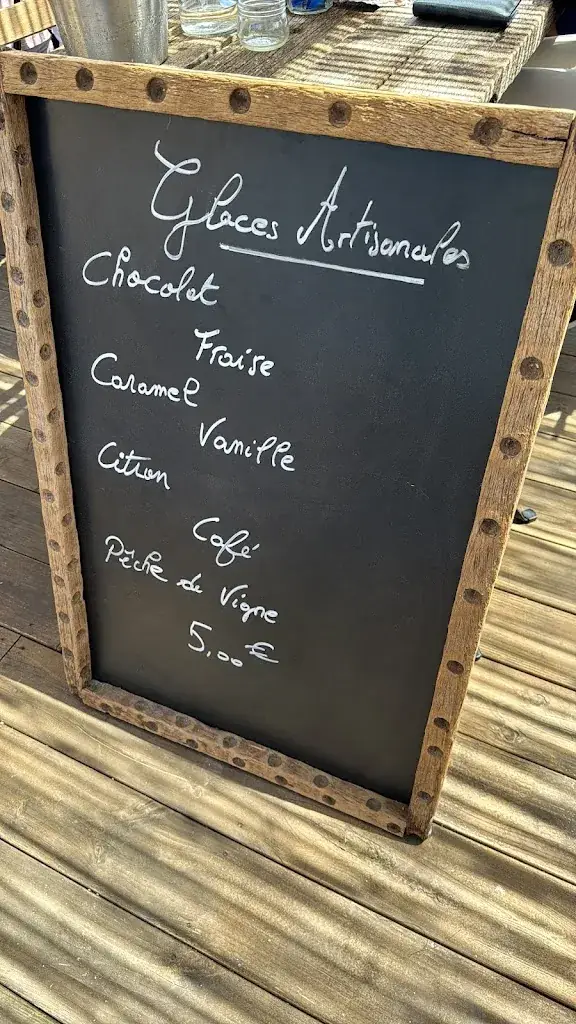 Glaces Artisanales
Chocolat
Fraise
Caramel
Vanille
Citron
Café
Pêche de Vigne
5,00 €